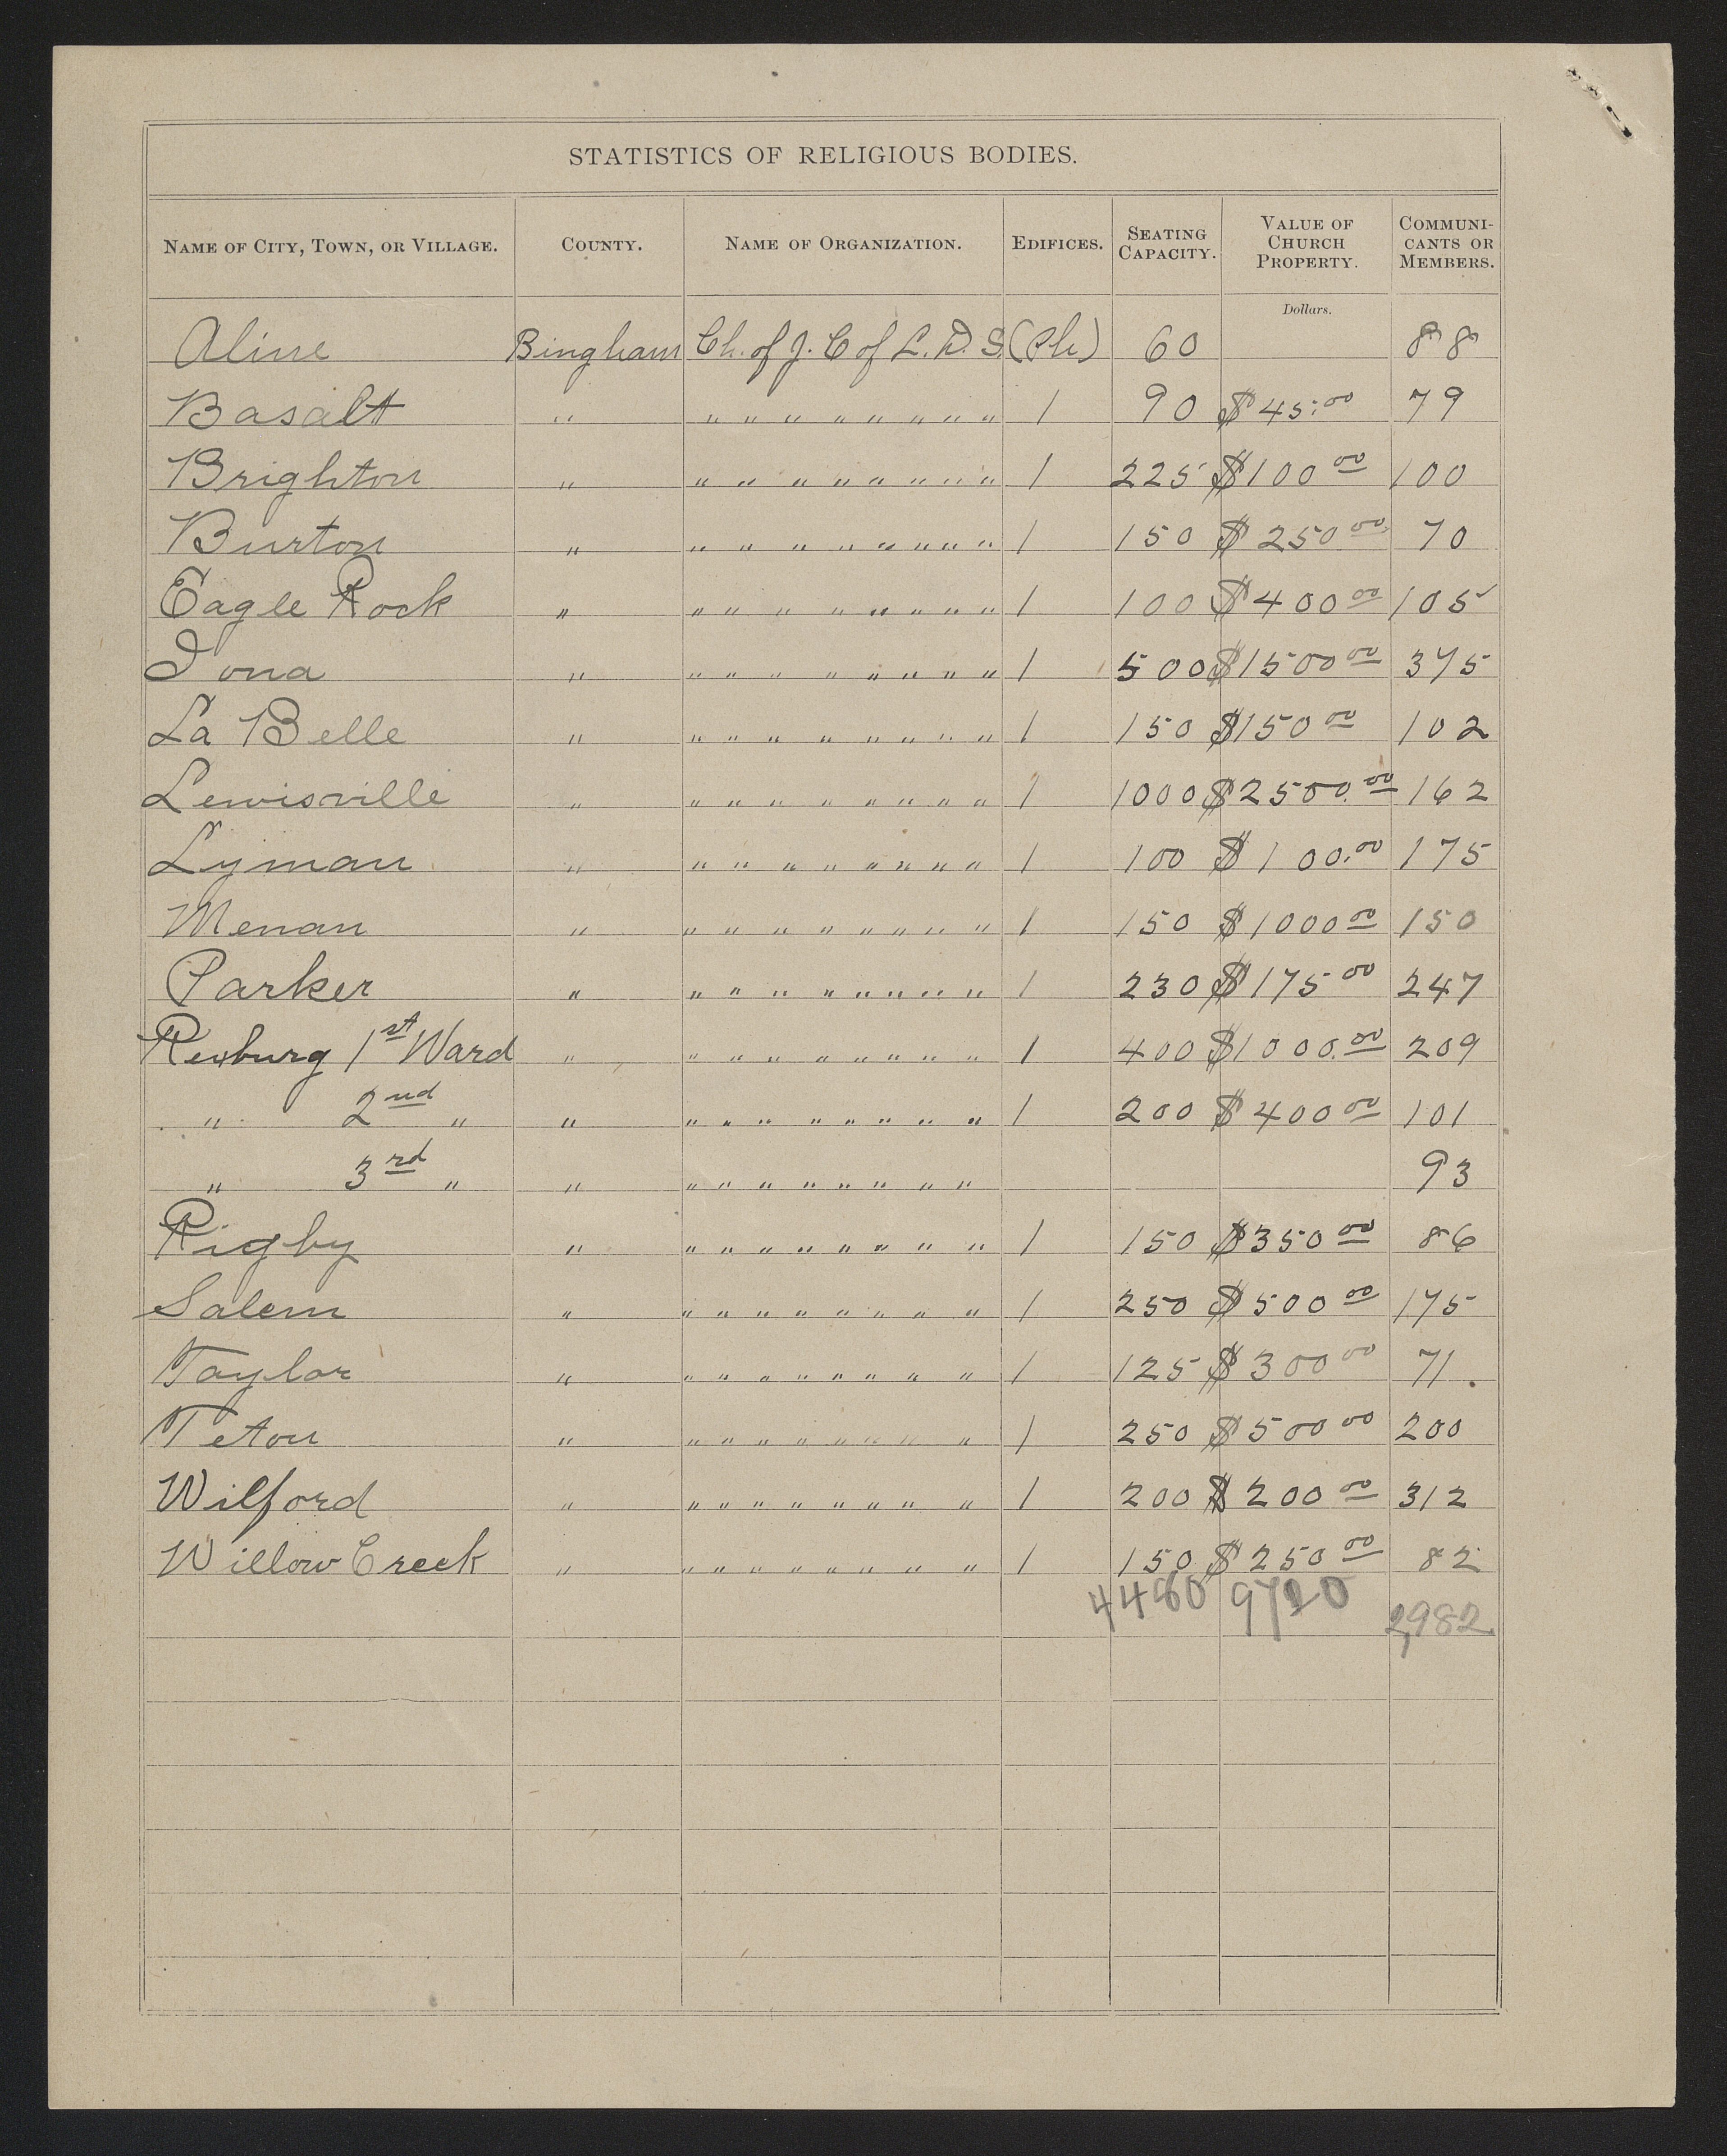 STATISTICS OF RELIGIOUS BODIES.
NAME OF CITY, TOWN, OR VILLAGE. COUNTY. NAME OF ORGANIZATION. EDIFICES. SEATING CAPACITY. VALUE OF CHURCH PROPERTY. COMMUNI-CANTS OR MEMBERS.
Dollars.
Aline Bingham Ch. of J. C of L. D. S. (Ph) 60 88
Basalt " " " " " " " " " " 1 90 $45.00 79
Brighton " " " " " " " " " " 1 225 $100 00 100
Burton " " " " " " " " " " 1 150 $250 00 70
Eagle Rock " " " " " " " " " " 1 100 $400 00 105
Iona " " " " " " " " " 1 500 $1500 00 375
La Belle " " " " " " " " " " 1 150 $150 00 102
Lewisville " " " " " " " " " " 1 1000 $2500.00 162
Lyman " " " " " " " " " " 1 100 $100.00 175
Menan " " " " " " " " " " 1 150 $1000 00 150
Parker " " " " " " " " " " 1 230 $175 00 247
Rexburg 1st Ward " " " " " " " " " " 1 400 $1000.00 209
" 2nd " " " " " " " " " " 1 200 $400 00 101
" 3rd " " " " " " " " " " 93
Rigby " " " " " " " " " " 1 150 $350 00 86
Salem " " " " " " " " " 1 250 $500 00 175
Taylor " " " " " " " " " 1 125 $300 00 71.
Teton " " " " " " " " " 1 250 $500 00 200
Wilford " " " " " " " " " 1 200 $200 00 312
Willow Creek " " " " " " " " " 1 150 $250 00 82
4480 9720 2,982